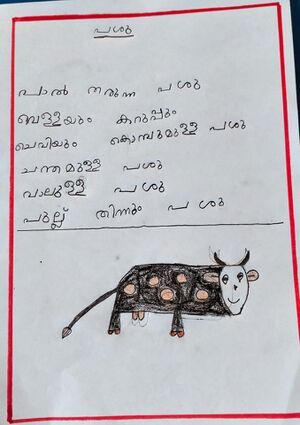 പശു
പാൽ തരുന്ന പശു
വെള്ളയും കറുപ്പും
ചെവിയും കൊമ്പുമുള്ള പശു
ചന്തമുള്ള പശു
വാലുള്ള പശു
പുല്ല് തിന്നും പശു